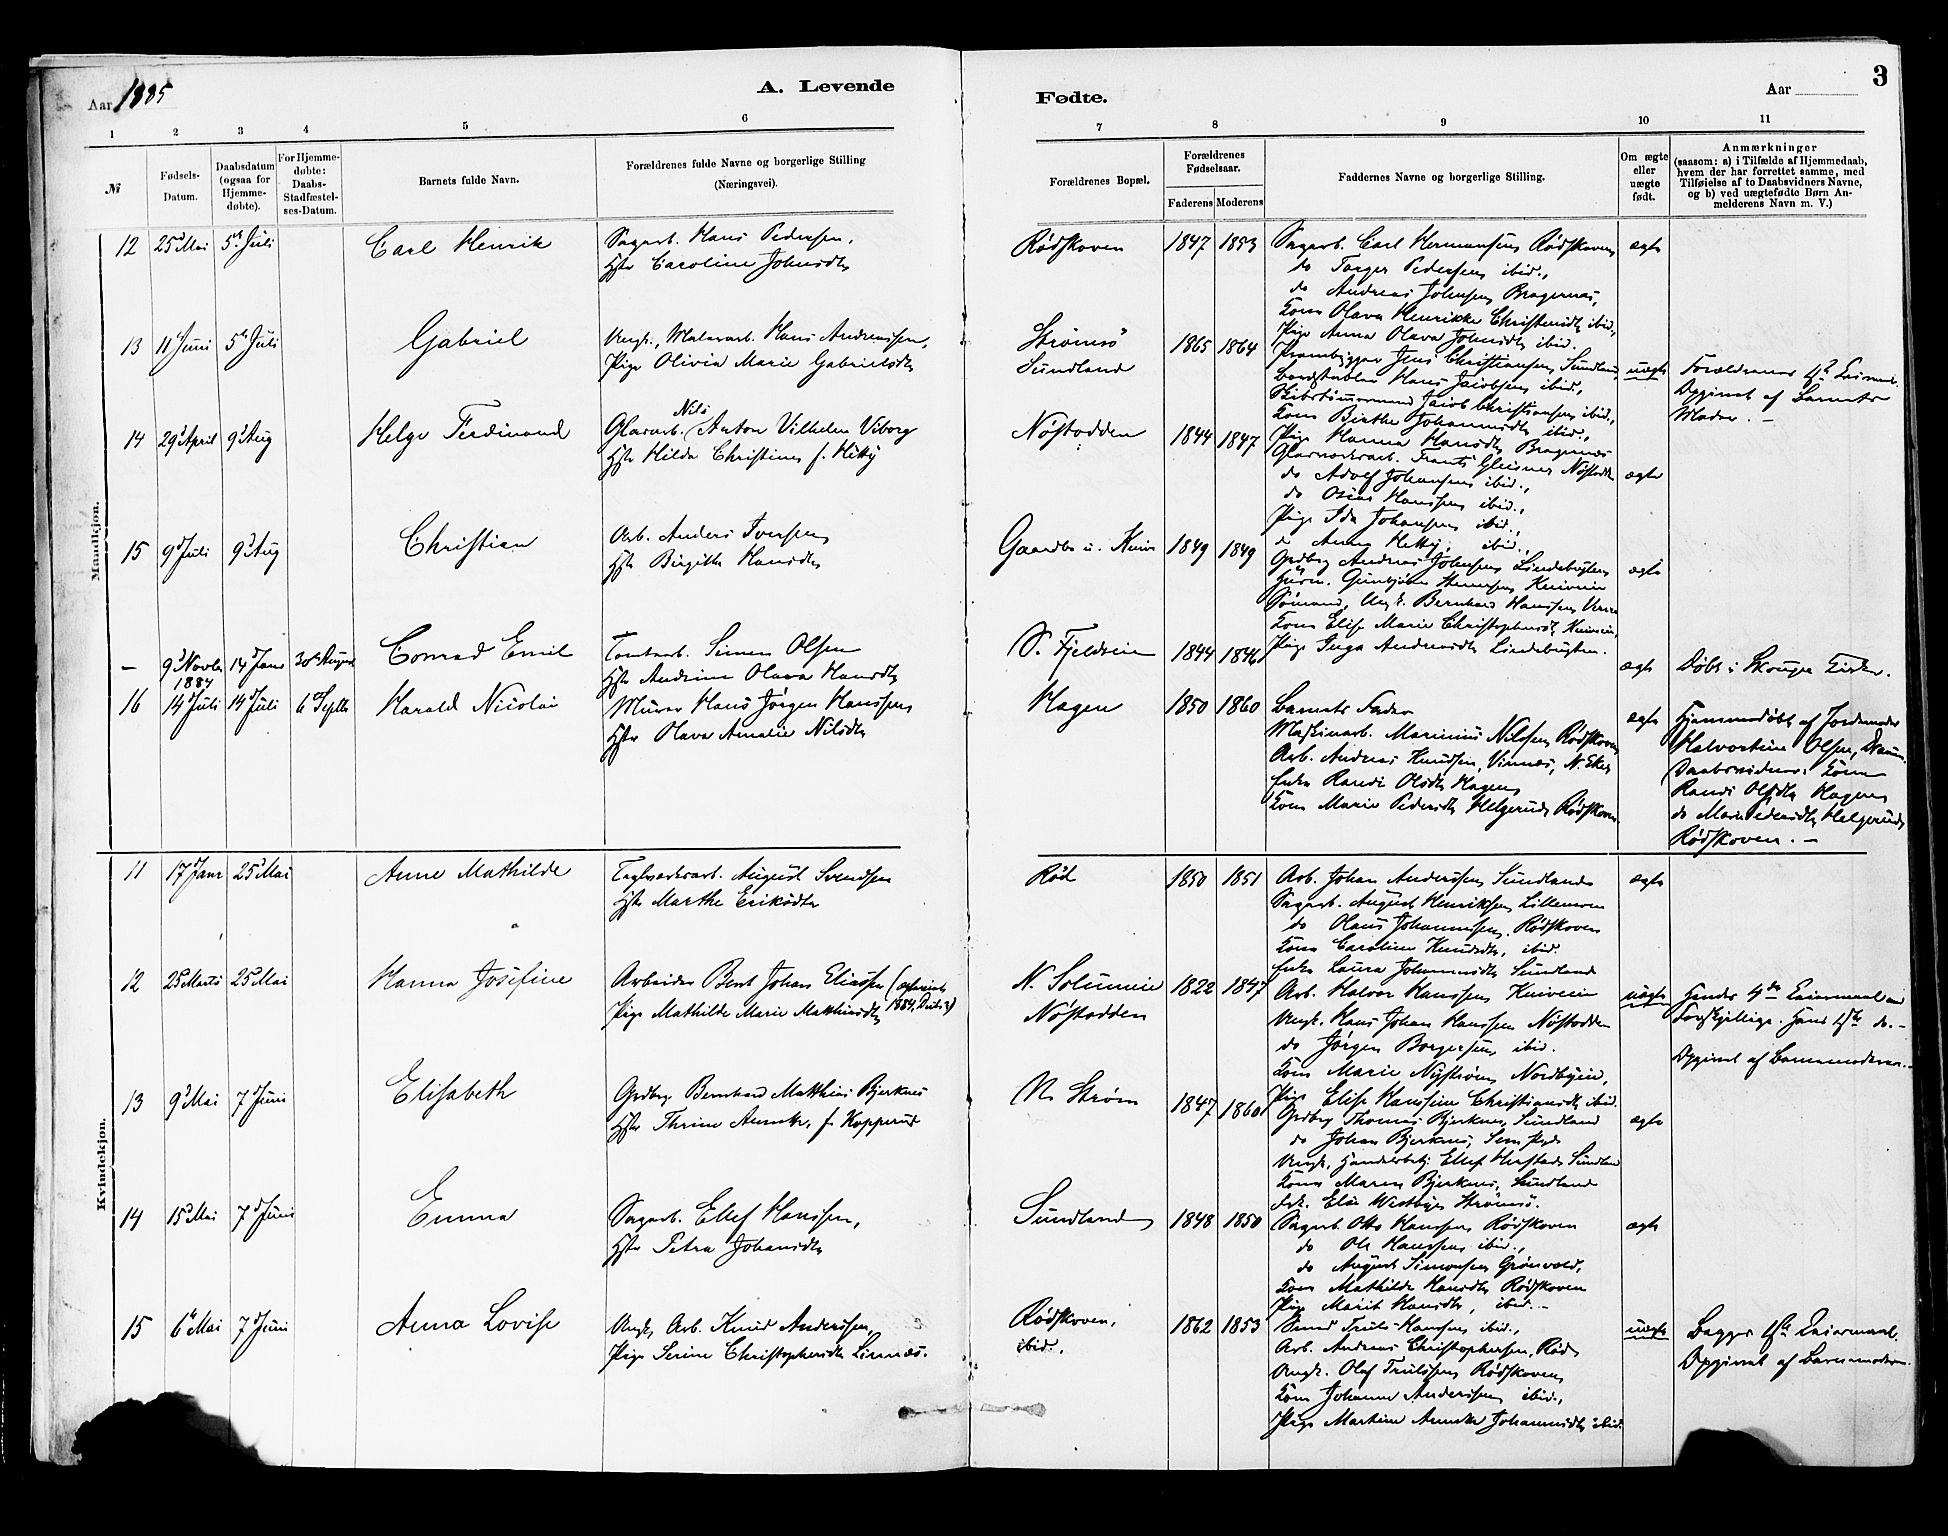 3
Aar 1885
A. Levende
Fødte.
Aar
1 2 3 4 5 6 7 8 9 10 11
№
Fødsels-
Datum.
Daabsdatum
(ogsaa for
Hjemme-
døbte).
For Hjemme-
døbte:
Daabs-
Stadfæstel-
ses-Datum.
Barnets fulde Navn.
Forældrenes fulde Navne og borgerlige Stilling
(Næringsvei).
Forældrenes Bopæl.
Forældrenes
Fødselsaar.
Faderens Moderens
Faddernes Navne og borgerlige Stilling.
Om ægte
eller
uægte
født.
Anmærkninger
(saasom: a) i Tilfælde af Hjemmedaab,
hvem der har forrettet samme, med
Tilføielse af to Daabsvidners Navne,
og b) ved uægtefødte Børn An-
melderens Navn m. V.)
Mandkjøn.
12 25 Mai 5 Juli
Carl Henrik
Sagarb. Hans Pedersen,
Hst Caroline Johnsdtr
Rødskoven
1847 1853
Sagarb. Carl Hermansen Rødskoven
do Torger Pedersen ibid.,
do Andreas Johnsen Bragernæs,
Kone Olava Henrikke Christensdtr ibid.,
Pige Anna Olava Johnsdtr ibid.
ægte
13 11 Juni 5 Juli
Gabriel
Ungk., Malerarb. Hans Andreassen,
Pige Olivia Marie Gabrielsdtr
Strømsø
Sundland
1865 1864
Jens Christiansen Sundland,
Hans Jacobsen ibid.,
Jacob Christiansen ibid.,
Kone Birthe Johannesdtr ibid.,
Pige Hanna Hansdtr Bragernæs
uægte
Forældrenes 1ste Leierm.
Opgivet af Barnets
Moder. –
14 29 April 9 Aug
Helge Ferdinand
Glasarb. Nils Anton Vilhelm Viborg
Hst Hilda Christine f. Hitty
Nøstodden
1844 1847
Frants Gleisner Nøstodd
do Adolf Johansen ibid.,
do Oscar Hanssen ibid.,
Pige Ida Johansen ibid.,
Anna ibid.,
ægte
15 9 Juli 9 Aug
Christian
Arb. Anders Iversen
Hst Birgitte Hansdtr
1849 1849
Grdbrg Andreas Johnsen Lindebugten
Sømand, Ungk. Bernhard Hanssen
Kone Elise Marie Christophersdtr
Pige Inga Andersdtr Lindebugten.
ægte
– 9 Novbr 1884 14 Janr 30 August
Conrad Emil
Tomtarb. Simon Olsen
Hst Andrine Olava Hansdtr
S. Fjeldsein
1844 1846
ægte
Døbt i Skouger Kirke.
16 14 Juli 14 Juli 6 Septbr
Harald Nicolai
Murer Hans Jørgen Hanssen
Hst Olava Amalie Nilsdtr
Hagen
1850 1860
Barnets Fader
Maskinarb. Marinius Nilssen Rødskoven
Arb. Andreas Knudsen, Vinnæs, N. Eker
Enke Randi Olsdtr Hagen
Kone Marie Pedersdtr Helgerud, Rødskoven.
ægte
Hjemmedøbt af Jordemoder
Halvordine Olsen, Dramm.
Daabsvidner: Kone
Randi Olsdtr Hagen
do Marie Pedersdtr Helgerud,
Rødskoven. –
Kvindekjøn.
11 17 Janr 25 Mai
Anne Mathilde
Teglverksarb. August Svendsen
Hst Marthe Eriksdtr
Rød
1850 1851
Arb. Johan Anderssen Sundland
Sagarb. August Henriksen Lillemoen
do Olaus Johannessen, Rødskoven
Kone Caroline Knudsdtr, ibid.
Enke Laura Johannesdtr Sundland
ægte
12 25 Marts 25 Mai
Hanna Josefine
Arbeider Bent Johan Eliassen
Pige Mathilde Marie Matthiasdtr
N. Solumeie
Nøstodden
1822 1847
Arb. Halvor Hanssen
Ungk. Hans Johan Hanssen Nøstodden
do Jørgen Borgersen ibid.
Kone Marie Nystrøm, Nordbyeie,
Pige Elise Hanssine Christiansdtr ibid.
uægte
Hendes 4de Leiermaal
Hans 1ste do. –
Opgivet af Barnemoderen. –
13 9 Mai 7 Juni
Elisabeth
Grdbrg Bernhard Matthias Bjerknes
Hst Thrine Annette, f. Kopperud
N. Strøm
1847 1860
Grdbrg Thomas Bjerknes, Sundland
do Johan Bjerknes,
Ungk. Ellef Sundland
Kone Maren Bjerknes, Sundland
Frk. Elise Westbye Strømsø.
ægte
14 15 Mai 7 Juni
Emma
Sagarb. Ellef Hanssen,
Hst Petra Johansdtr
Sundland
1848 1850
Sagarb. Otto Hanssen Rødskoven
do Ole Hanssen ibid.,
do August Simonsen Grønvold,
Kone Mathilde Hansdtr Rødskoven
Pige Marit Hansdtr, ibid. –
ægte
15 6 Mai 7 Juni
Anna Lovise
Ungk. Arb. Knud Anderssen,
Pige Serine Christophersdtr Linnæs.
Rødskoven,
ibid.
1862 1853
Truls Hansen ibid.,
Arb. Andreas Christophersen, Rød
Ungk. Olaf Trulssen Rødskoven
Kone Johanne Anderssen ibid.,
Pige Martine Annette Johannesdtr ibid.
uægte
Begges 1ste Leiermaal.
Opgivet af Barnemoderen.